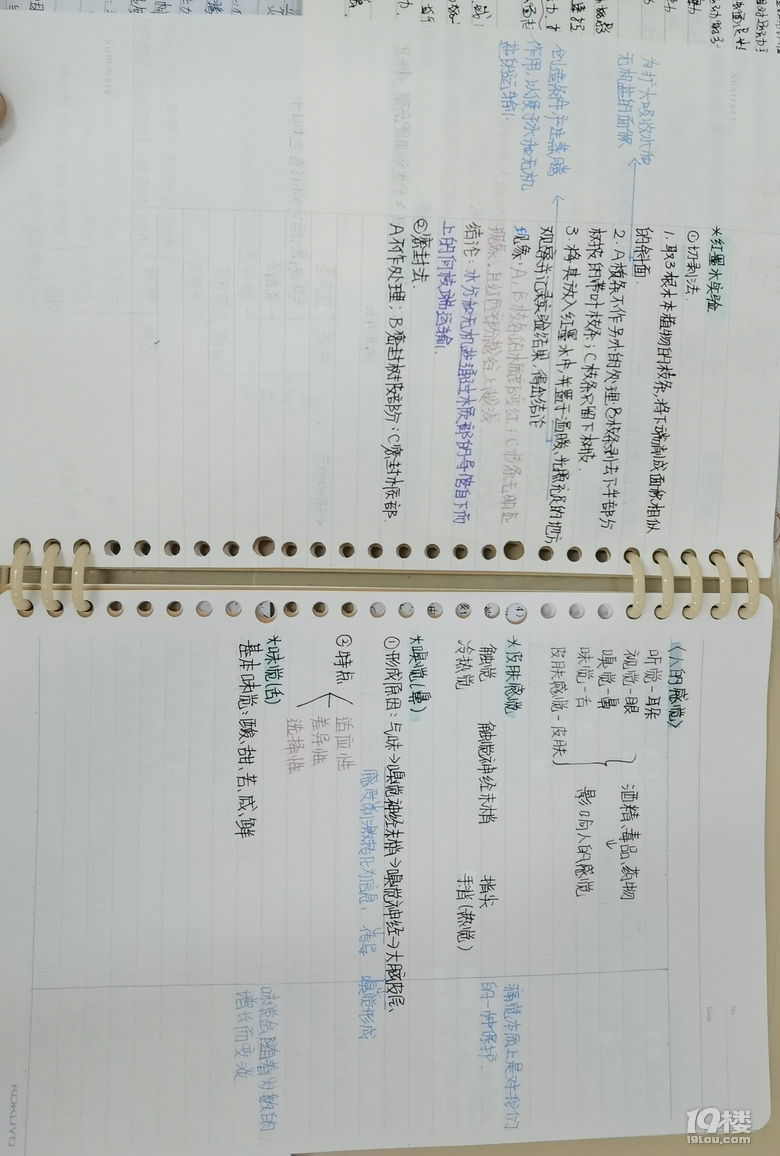 *红墨水实验
①切割法
1. 取3根木本植物的枝条，将下端削成面积相似
的斜面.
2. A枝条不作另外的处理；B枝条剥去下半部分
树皮的带叶枝条；C枝条只留下树皮.
3. 将其放入红墨水中，并置于温暖、光照充足的地方
观察并记录实验结果，得出结论
现象：A、B枝条的木质部变红；C枝条无明显
现象，且红色部分越往上越浅
结论：水分和无机盐通过木质部的导管自下而
上的向枝端运输.
②密封法.
A不作处理；B密封树皮部分；C密封木质部.
为扩大吸收水和
无机盐的面积
创造条件产生蒸腾
作用，以便于水和无机
盐的运输.
Summary
Abstract
《人的感觉》
听觉－耳朵
视觉－眼
嗅觉－鼻
味觉－舌
皮肤感觉－皮肤
酒精、毒品、药物
↓
影响人的感觉
*皮肤感觉
触觉 触觉神经末梢 指尖
冷热觉 手背(热觉)
痛觉本质上是对我们
的一种保护.
*嗅觉(鼻)
①形成原因：气味→嗅觉神经末梢→嗅觉神经→大脑皮层.
感受刺激转化为信息. 传导 嗅觉形成
②特点
适应性
差异性
选择性
*味觉(舌)
基本味觉：酸、甜、苦、咸、鲜
味觉会随着岁数的
增长而变淡
No.
Date
KOKUYO
19楼
19lou.com